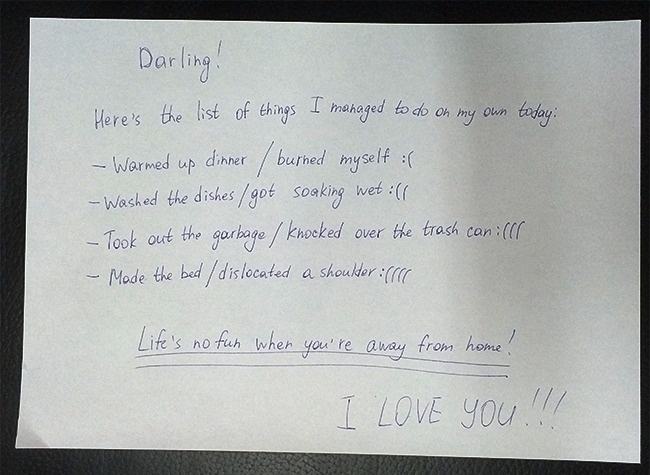 Darling!
Here's the list of things I managed to do on my own today:
- Warmed up dinner / burned myself :(
- Washed the dishes / got soaking wet :((
- Took out the garbage / knocked over the trash can :(((
- Made the bed / dislocated a shoulder :((((
Life's no fun when you're away from home!
I LOVE YOU!!!